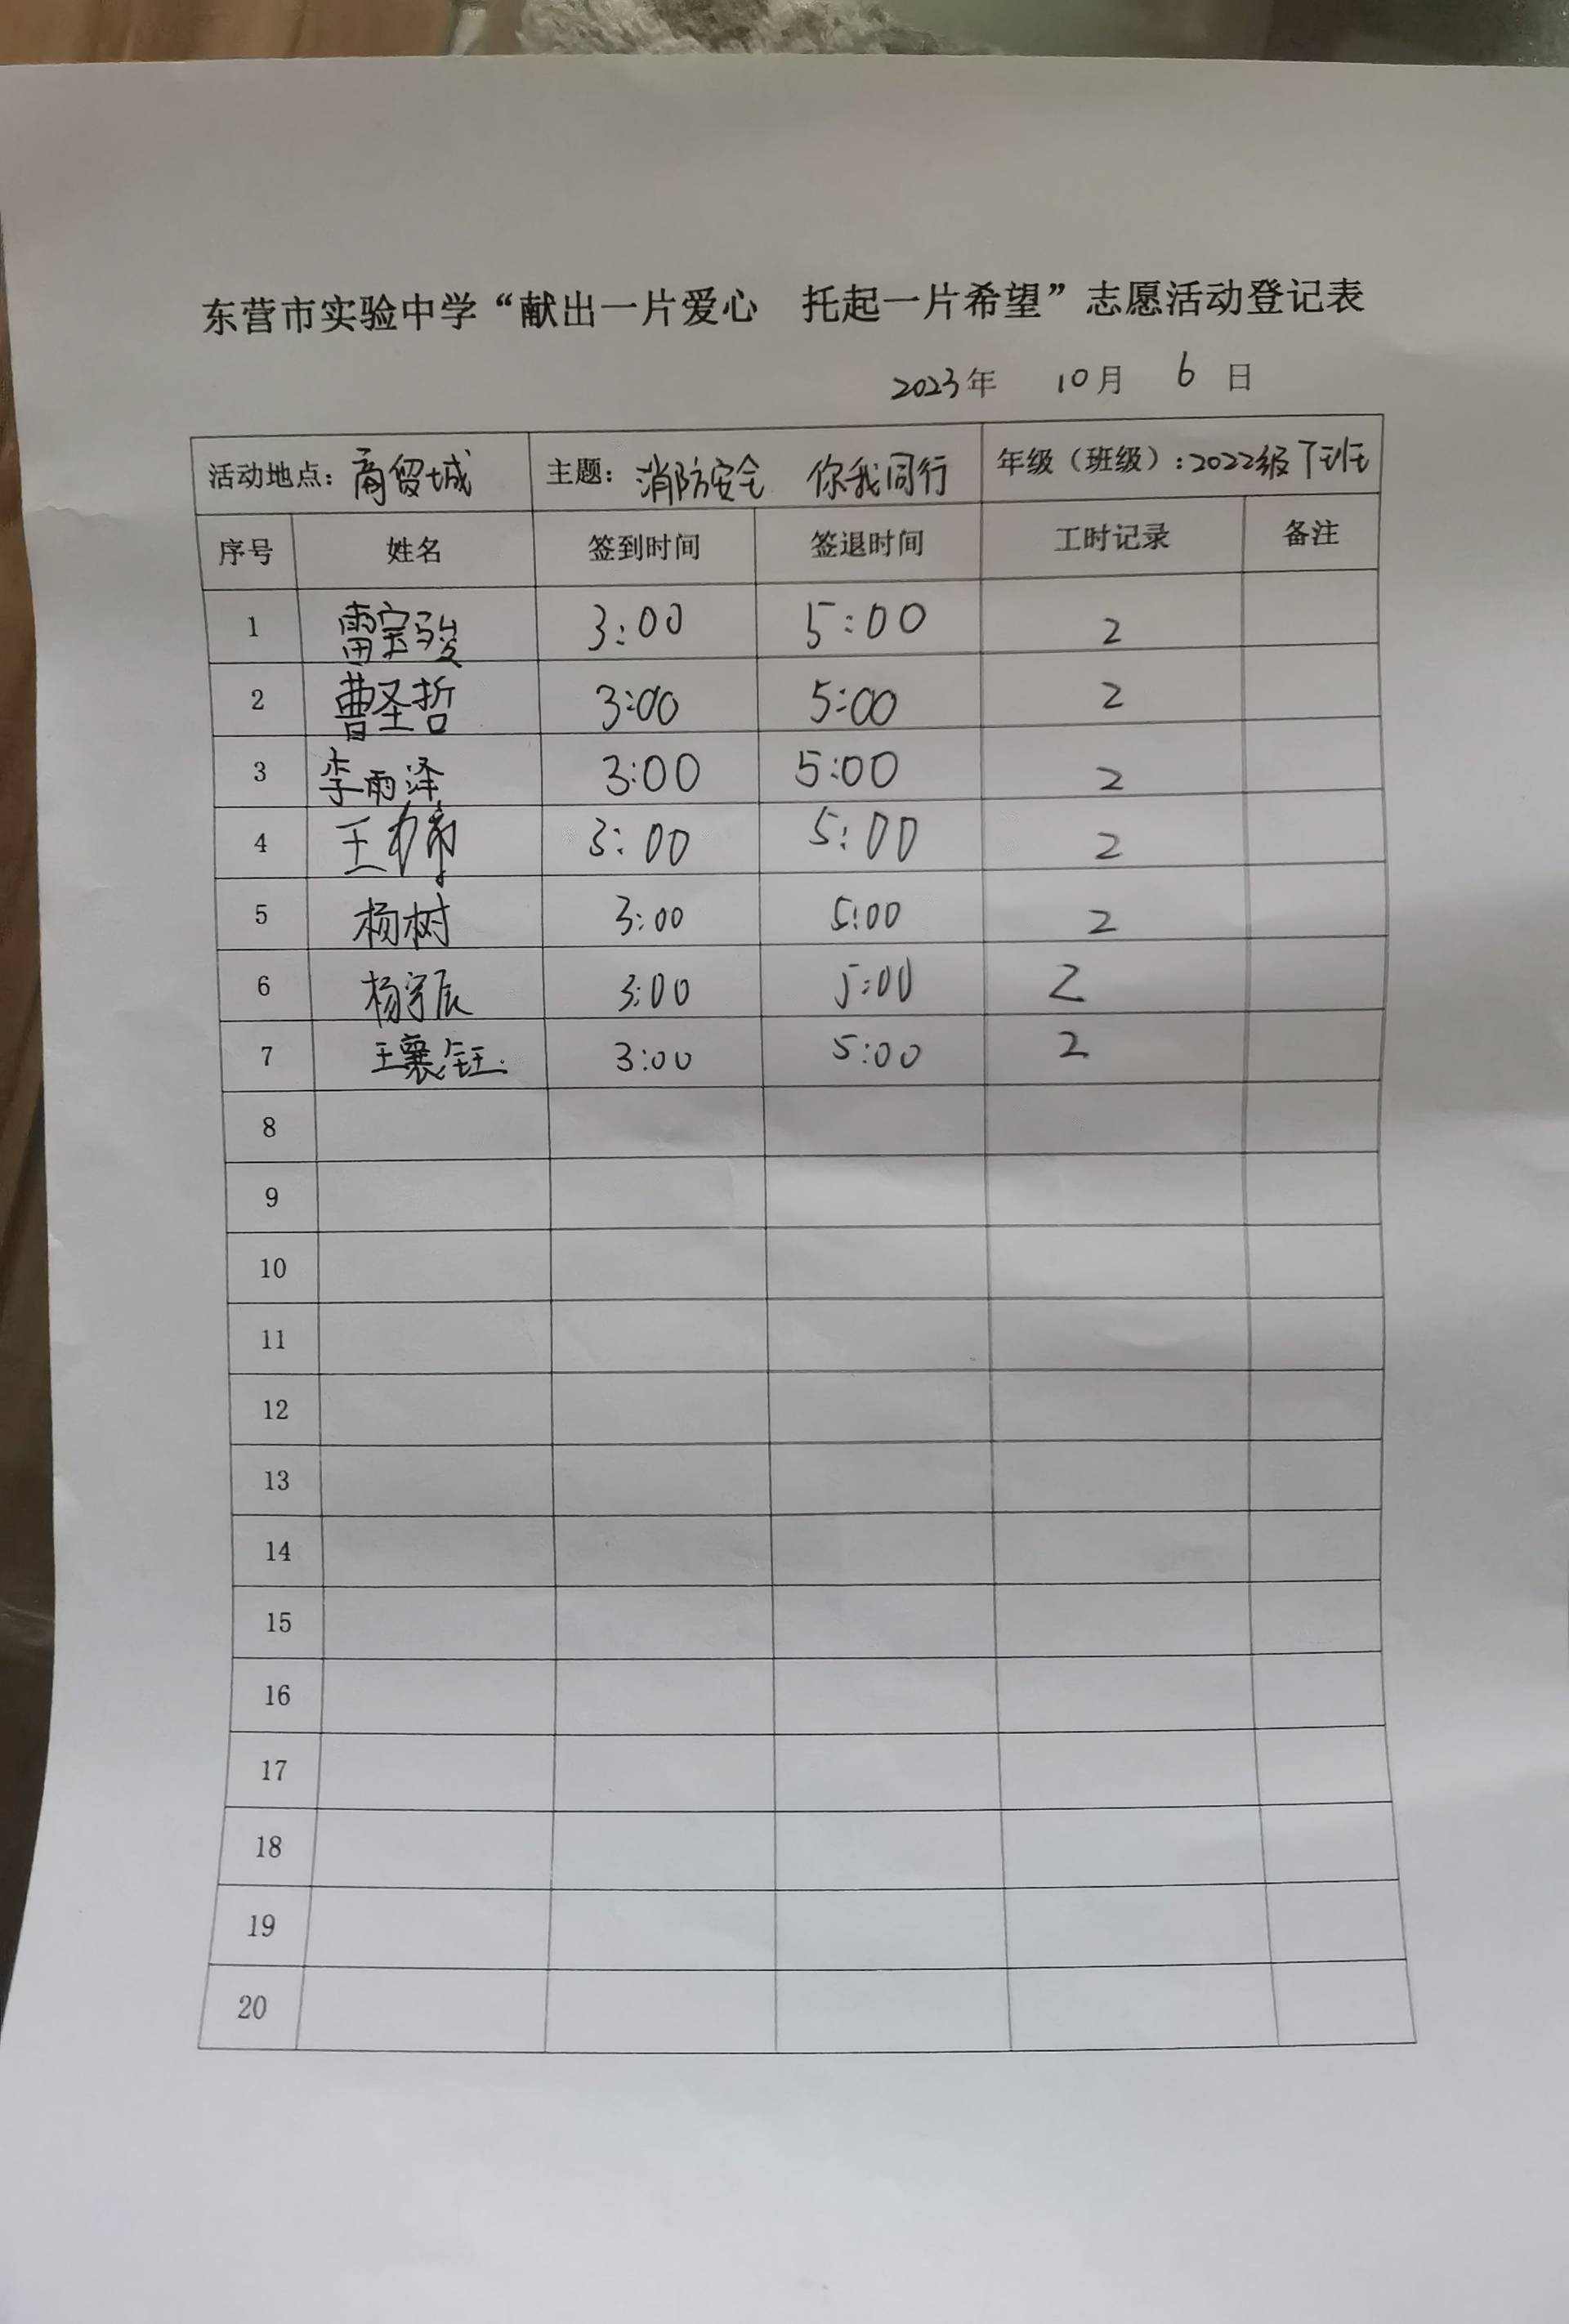 东营市实验中学“献出一片爱心 托起一片希望”志愿活动登记表
2023年 10月 6日
活动地点：商贸城 主题：消防安全 你我同行 年级（班级）：2022级 班
序号 姓名 签到时间 签退时间 工时记录 备注
1 雷宗骏 3:00 5:00 2
2 曹圣哲 3:00 5:00 2
3 李雨泽 3:00 5:00 2
4 王 3:00 5:00 2
5 杨树 3:00 5:00 2
6 杨宇辰 3:00 5:00 2
7 王襄钰 3:00 5:00 2
8
9
10
11
12
13
14
15
16
17
18
19
20